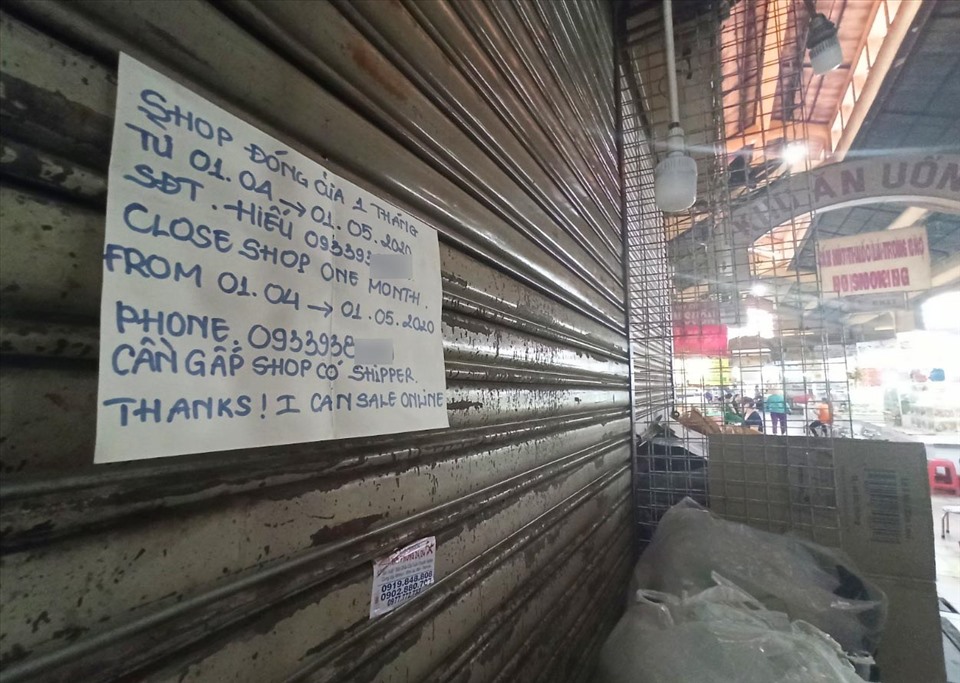 SHOP ĐÓNG CỬA 1 THÁNG
TỪ 01.04 → 01.05.2020
SĐT. HIẾU 093393
CLOSE SHOP ONE MONTH.
FROM 01.04 → 01.05.2020
PHONE: 0933938
CẦN GẤP SHOP CÓ SHIPPER.
THANKS! I CAN SALE ONLINE
0919.848.808
0902.880.
KHU ĂN UỐN